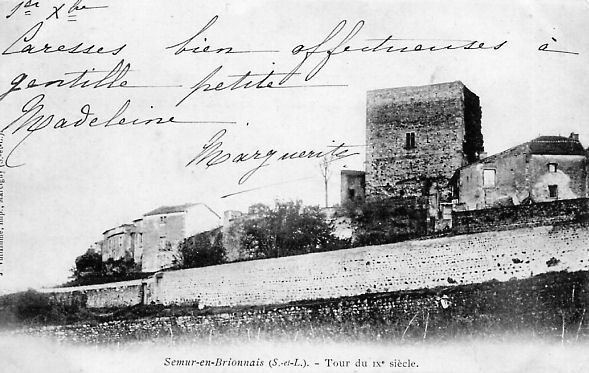 1er Xbre
Caresses bien affectueuses à
gentille petite
Madeleine
Marguerite
J. Vintaimbe, imp., Marcigny (S.-et-L.).
Semur-en-Brionnais (S.-et-L.). - Tour du IXe siècle.